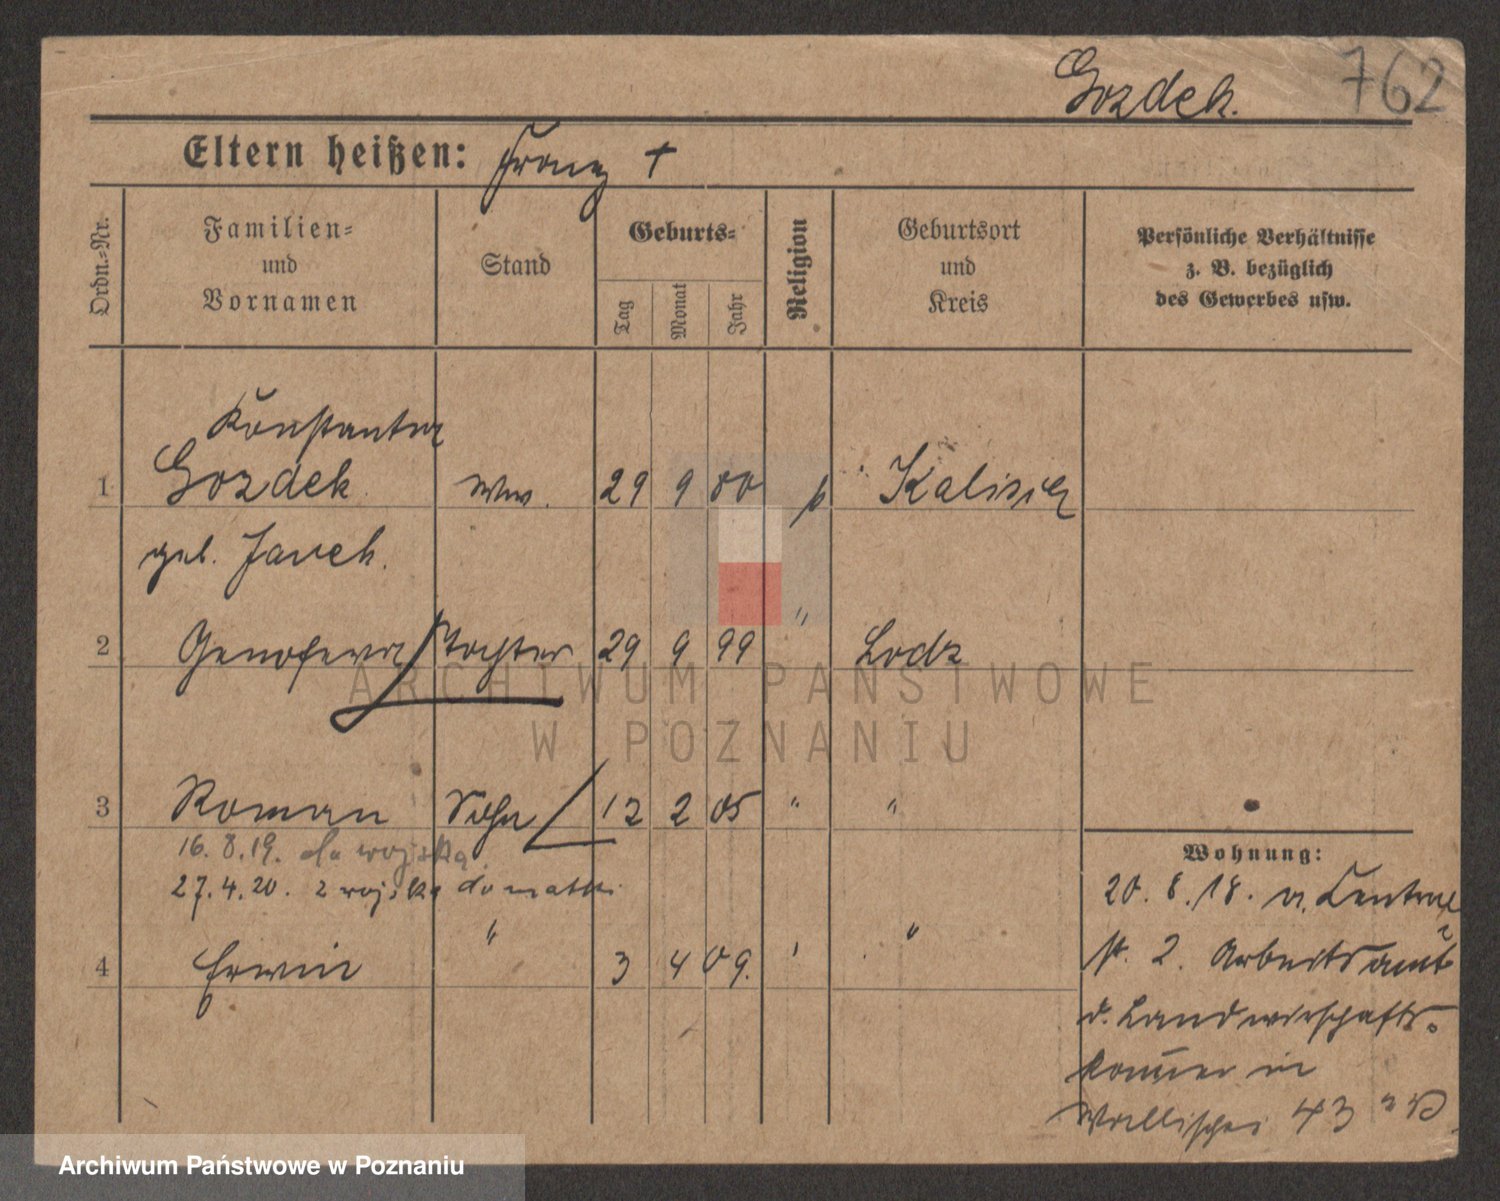 Gozdek. 762
Eltern heißen: Franz †
Ordn.-Nr.
Familien- und Vornamen
Stand
Geburts-
Tag
Monat
Jahr
Religion
Geburtsort und Kreis
Persönliche Verhältnisse z. B. bezüglich des Gewerbes usw.
Konstantin
1 Gozdek Ww. 29 9 80 k Kalisch
geb. Janek.
2 Genofewa Tochter 29 9 99 " Lodz
3 Roman Sohn 12 2 05 " "
16. 8. 19. do wojska.
27. 4. 20. z wojska do matki.
4 Erwin " 3 4 09. ' "
Wohnung:
20. 8. 18. v. Central
st. 2. Arbeitsamt
d. Landwirschafts-
kammer in
Wallischei 43
ARCHIWUM PAŃSTWOWE
W POZNANIU
Archiwum Państwowe w Poznaniu